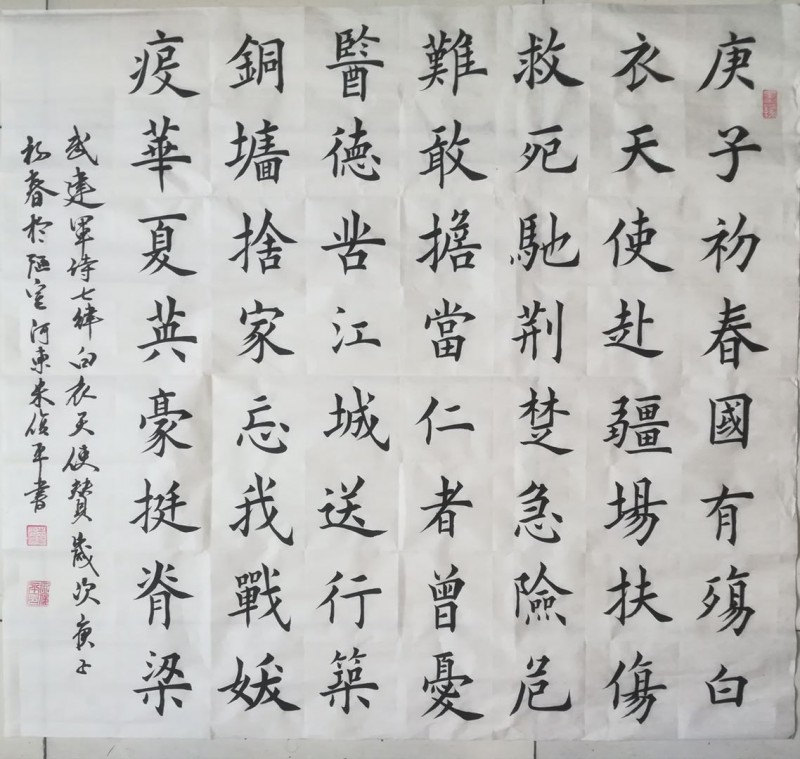 庚子初春國有殤白
衣天使赴疆場扶傷
救死馳荆楚急險危
難敢擔當仁者曾憂
醫德江城送行築
銅墻捨家忘我戰
疫華夏英豪挺脊梁
武建軍詩七律白衣天使贊歲次庚子
初春於陋室河東朱平書